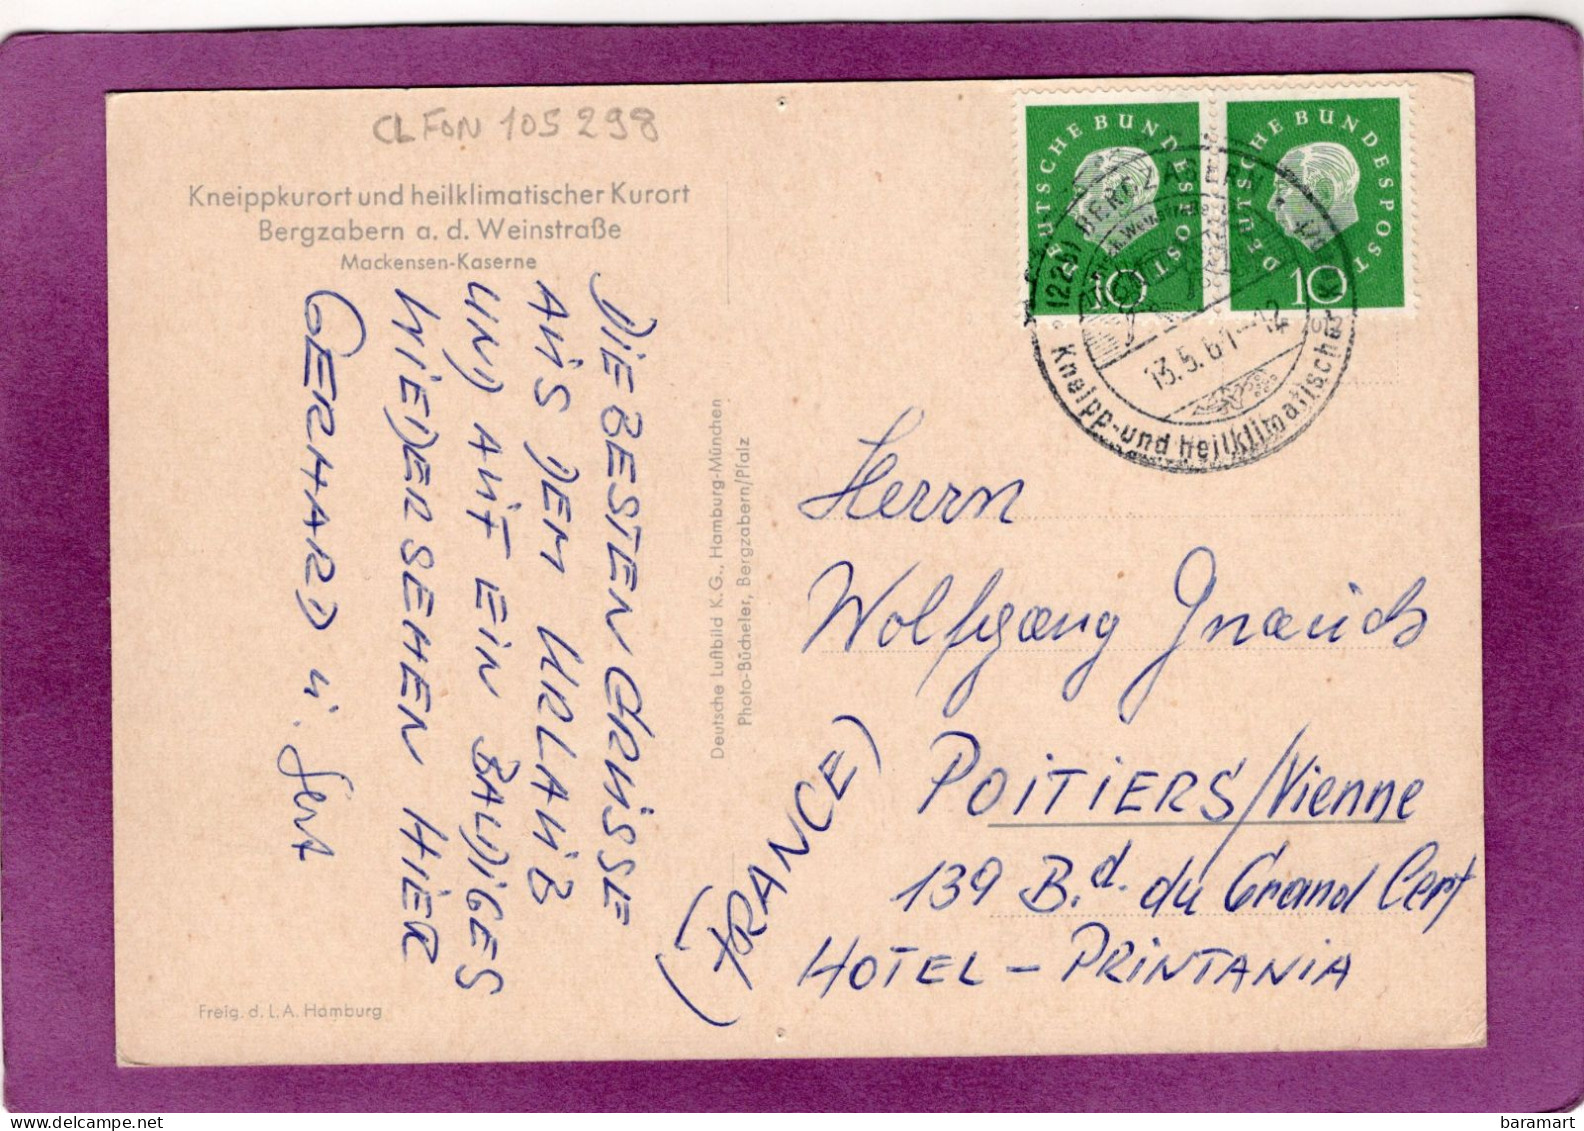 CLFON 105298
Kneippkurort und heilklimatischer Kurort
Bergzabern a. d. Weinstraße
Mackensen-Kaserne
DIE BESTEN GRÜSSE
AUS DEM URLAUB
UND AUF EIN BALDIGES
WIEDERSEHEN HIER
GERHARD u. Gert
Freig. d. L.A. Hamburg
Deutsche Luftbild K.G., Hamburg-München
Photo-Bücheler, Bergzabern/Pfalz
DEUTSCHE BUNDESPOST
10
DEUTSCHE BUNDESPOST
10
(22b) BERGZABERN
13.5.61-12
Kneipp- und heilklimatischer
Herrn
Wolfgang Gnauck
POITIERS/Vienne
139 B.d. du Grand Cerf
HOTEL - PRINTANIA
(FRANCE)
baramart